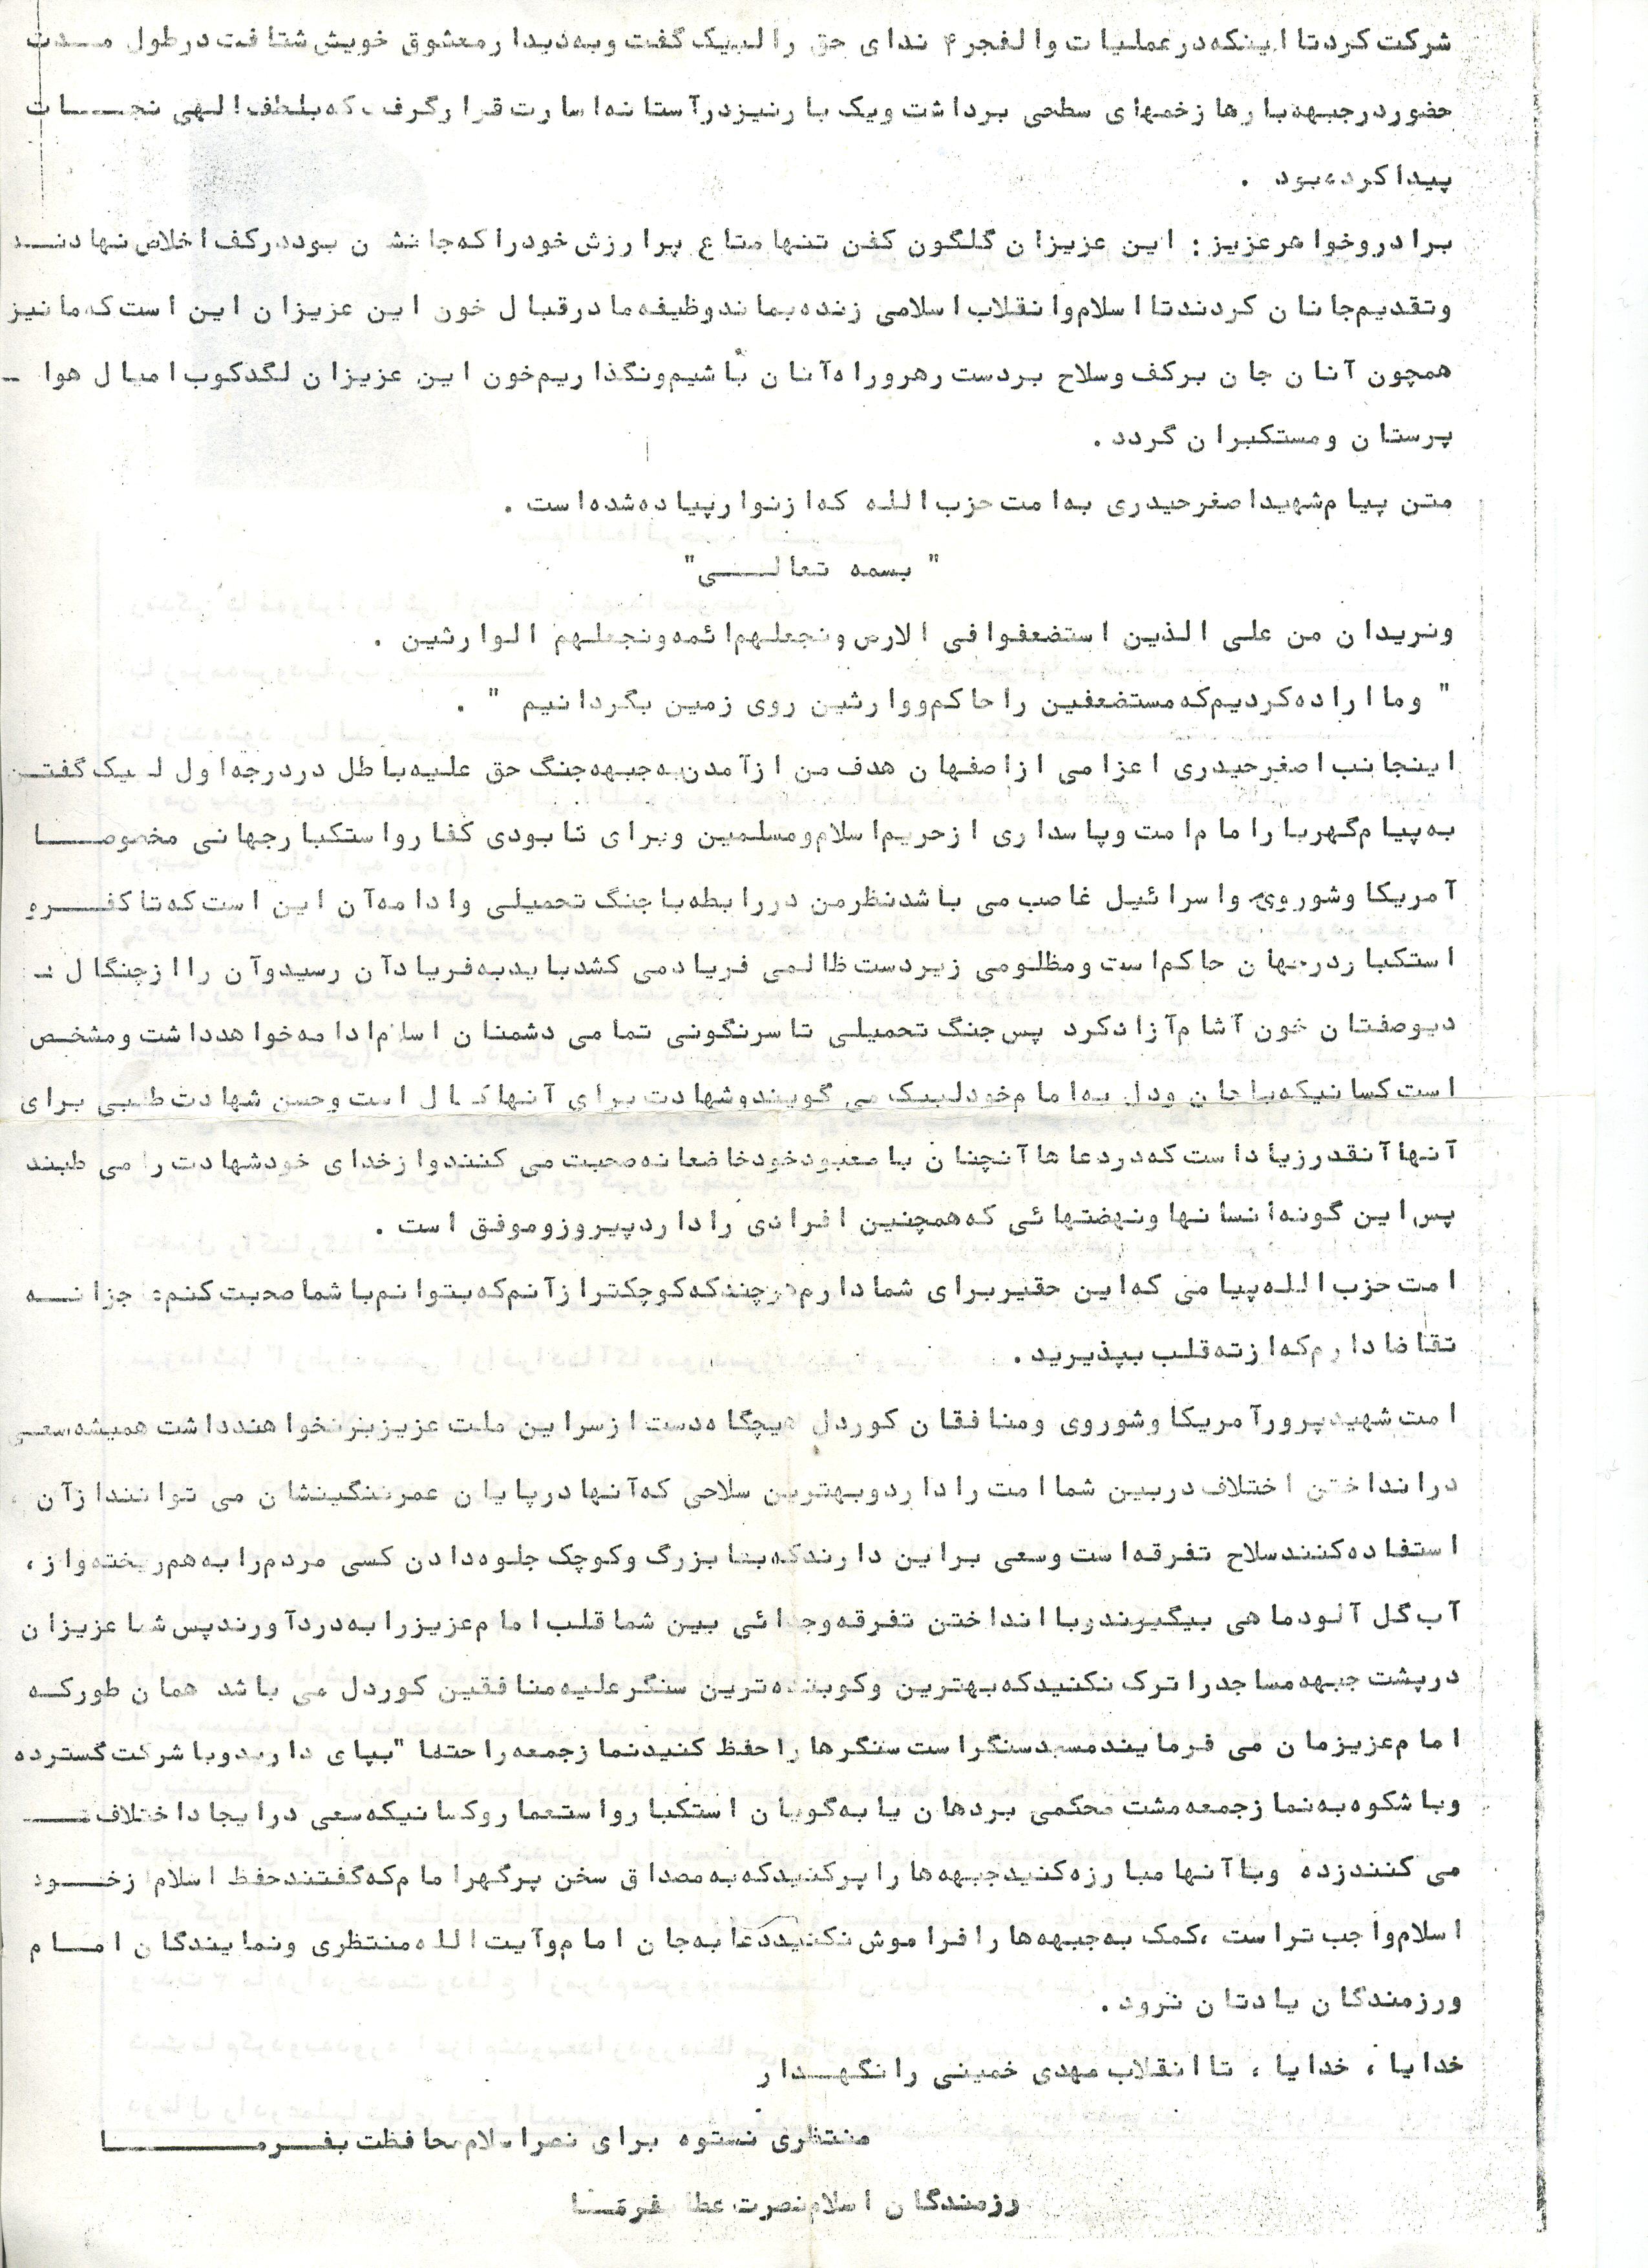 شرکت کرد تا اینکه در عملیات والفجر ۴ ندای حق را لبیک گفت و به دیدار معشوق خویش شتافت در طول مدت
حضور در جبهه بارها زخمهای سطحی برداشت و یک بار نیز در آستانه اسارت قرار گرفت که بلطف الهی نجات
پیدا کرده بود .
برادر و خواهر عزیز : این عزیزان گلگون کفن تنها متاع پرارزش خود را که جانشان بود در کف اخلاص نهادند
و تقدیم جانان کردند تا اسلام و انقلاب اسلامی زنده بماند وظیفه ما در قبال خون این عزیزان این است که ما نیز
همچون آنان جان بر کف و سلاح بر دست رهرو راه آنان باشیم و نگذاریم خون این عزیزان لگدکوب امیال هوا -
پرستان و مستکبران گردد .
متن پیام شهید اصغر حیدری به امت حزب الله که از نوار پیاده شده است .
" بسمه تعالی"
و نرید ان من علی الذین استضعفوا فی الارض و نجعلهم ائمه و نجعلهم الوارثین .
" و ما اراده کردیم که مستضعفین را حاکم و وارثین روی زمین بگردانیم " .
اینجانب اصغر حیدری اعزامی از اصفهان هدف من از آمدن به جبهه جنگ حق علیه باطل در درجه اول لبیک گفتن
به پیام گهربار امام امت و پاسداری از حریم اسلام و مسلمین و برای نابودی کفار و استکبار جهانی مخصوصا
آمریکا و شوروی و اسرائیل غاصب می باشد نظر من در رابطه با جنگ تحمیلی و ادامه آن این است که تا کفر و
استکبار در جهان حاکم است و مظلومی زیر دست ظالمی فریاد می کشد باید به فریاد آن رسید و آن را از چنگال
دیو صفتان خون آشام آزاد کرد پس جنگ تحمیلی تا سرنگونی تمامی دشمنان اسلام ادامه خواهد داشت و مشخص
است کسانیکه با جان و دل به امام خود لبیک می گویند و شهادت برای آنها کمال است و حسن شهادت طلبی برای
آنها آنقدر زیاد است که در دعاها آنچنان با معبود خود خاضعانه صحبت می کنند و از خدای خود شهادت را می طلبند
پس این گونه انسانها و نهضتهائی که همچنین افرادی را دارد پیروز و موفق است .
امت حزب الله پیامی که این حقیر برای شما دارم هر چند که کوچکتر از آنم که بتوانم با شما صحبت کنم:
تقاضا دارم که از ته قلب بپذیرید .
امت شهید پرور آمریکا و شوروی و منافقان کوردل هیچگاه دست از سر این ملت عزیز بر نخواهند داشت همیشه سعی
در انداختن اختلاف در بین شما امت را دارد و بهترین سلاحی که آنها در پایان عمر ننگینشان می توانند از آن
استفاده کنند سلاح تفرقه است و سعی بر این دارند که با بزرگ و کوچک جلوه دادن کسی مردم را به هم ریخته و از ،
آب گل آلود ماهی بگیرند و با انداختن تفرقه و جدائی بین شما قلب امام عزیز را به درد آورند پس شما عزیزان
در پشت جبهه مساجد را ترک نکنید که بهترین و کوبنده ترین سنگر علیه منافقین کوردل می باشد همان طور که
امام عزیزمان می فرمایند مسجد سنگر است سنگرها را حفظ کنید نماز جمعه را حتما "بپای دارید و با شرکت گسترده
و با شکوه به نماز جمعه مشت محکمی بر دهان یا به گویان استکبار و استعمار و کسانیکه سعی در ایجاد اختلاف
می کنند زده و با آنها مبارزه کنید جبهه ها را پر کنید که به مصداق سخن پر گهر امام که گفتند حفظ اسلام از خود
اسلام واجب تر است ، کمک به جبهه ها را فراموش نکنید دعا به جان امام و آیت الله منتظری و نمایندگان امام
و رزمندگان یادتان نرود .
خدایا ، خدایا ، تا انقلاب مهدی خمینی را نگهدار
منتظری نستوه برای نصر اسلام محافظت بفرما
رزمندگان اسلام نصرت عطا بفرما